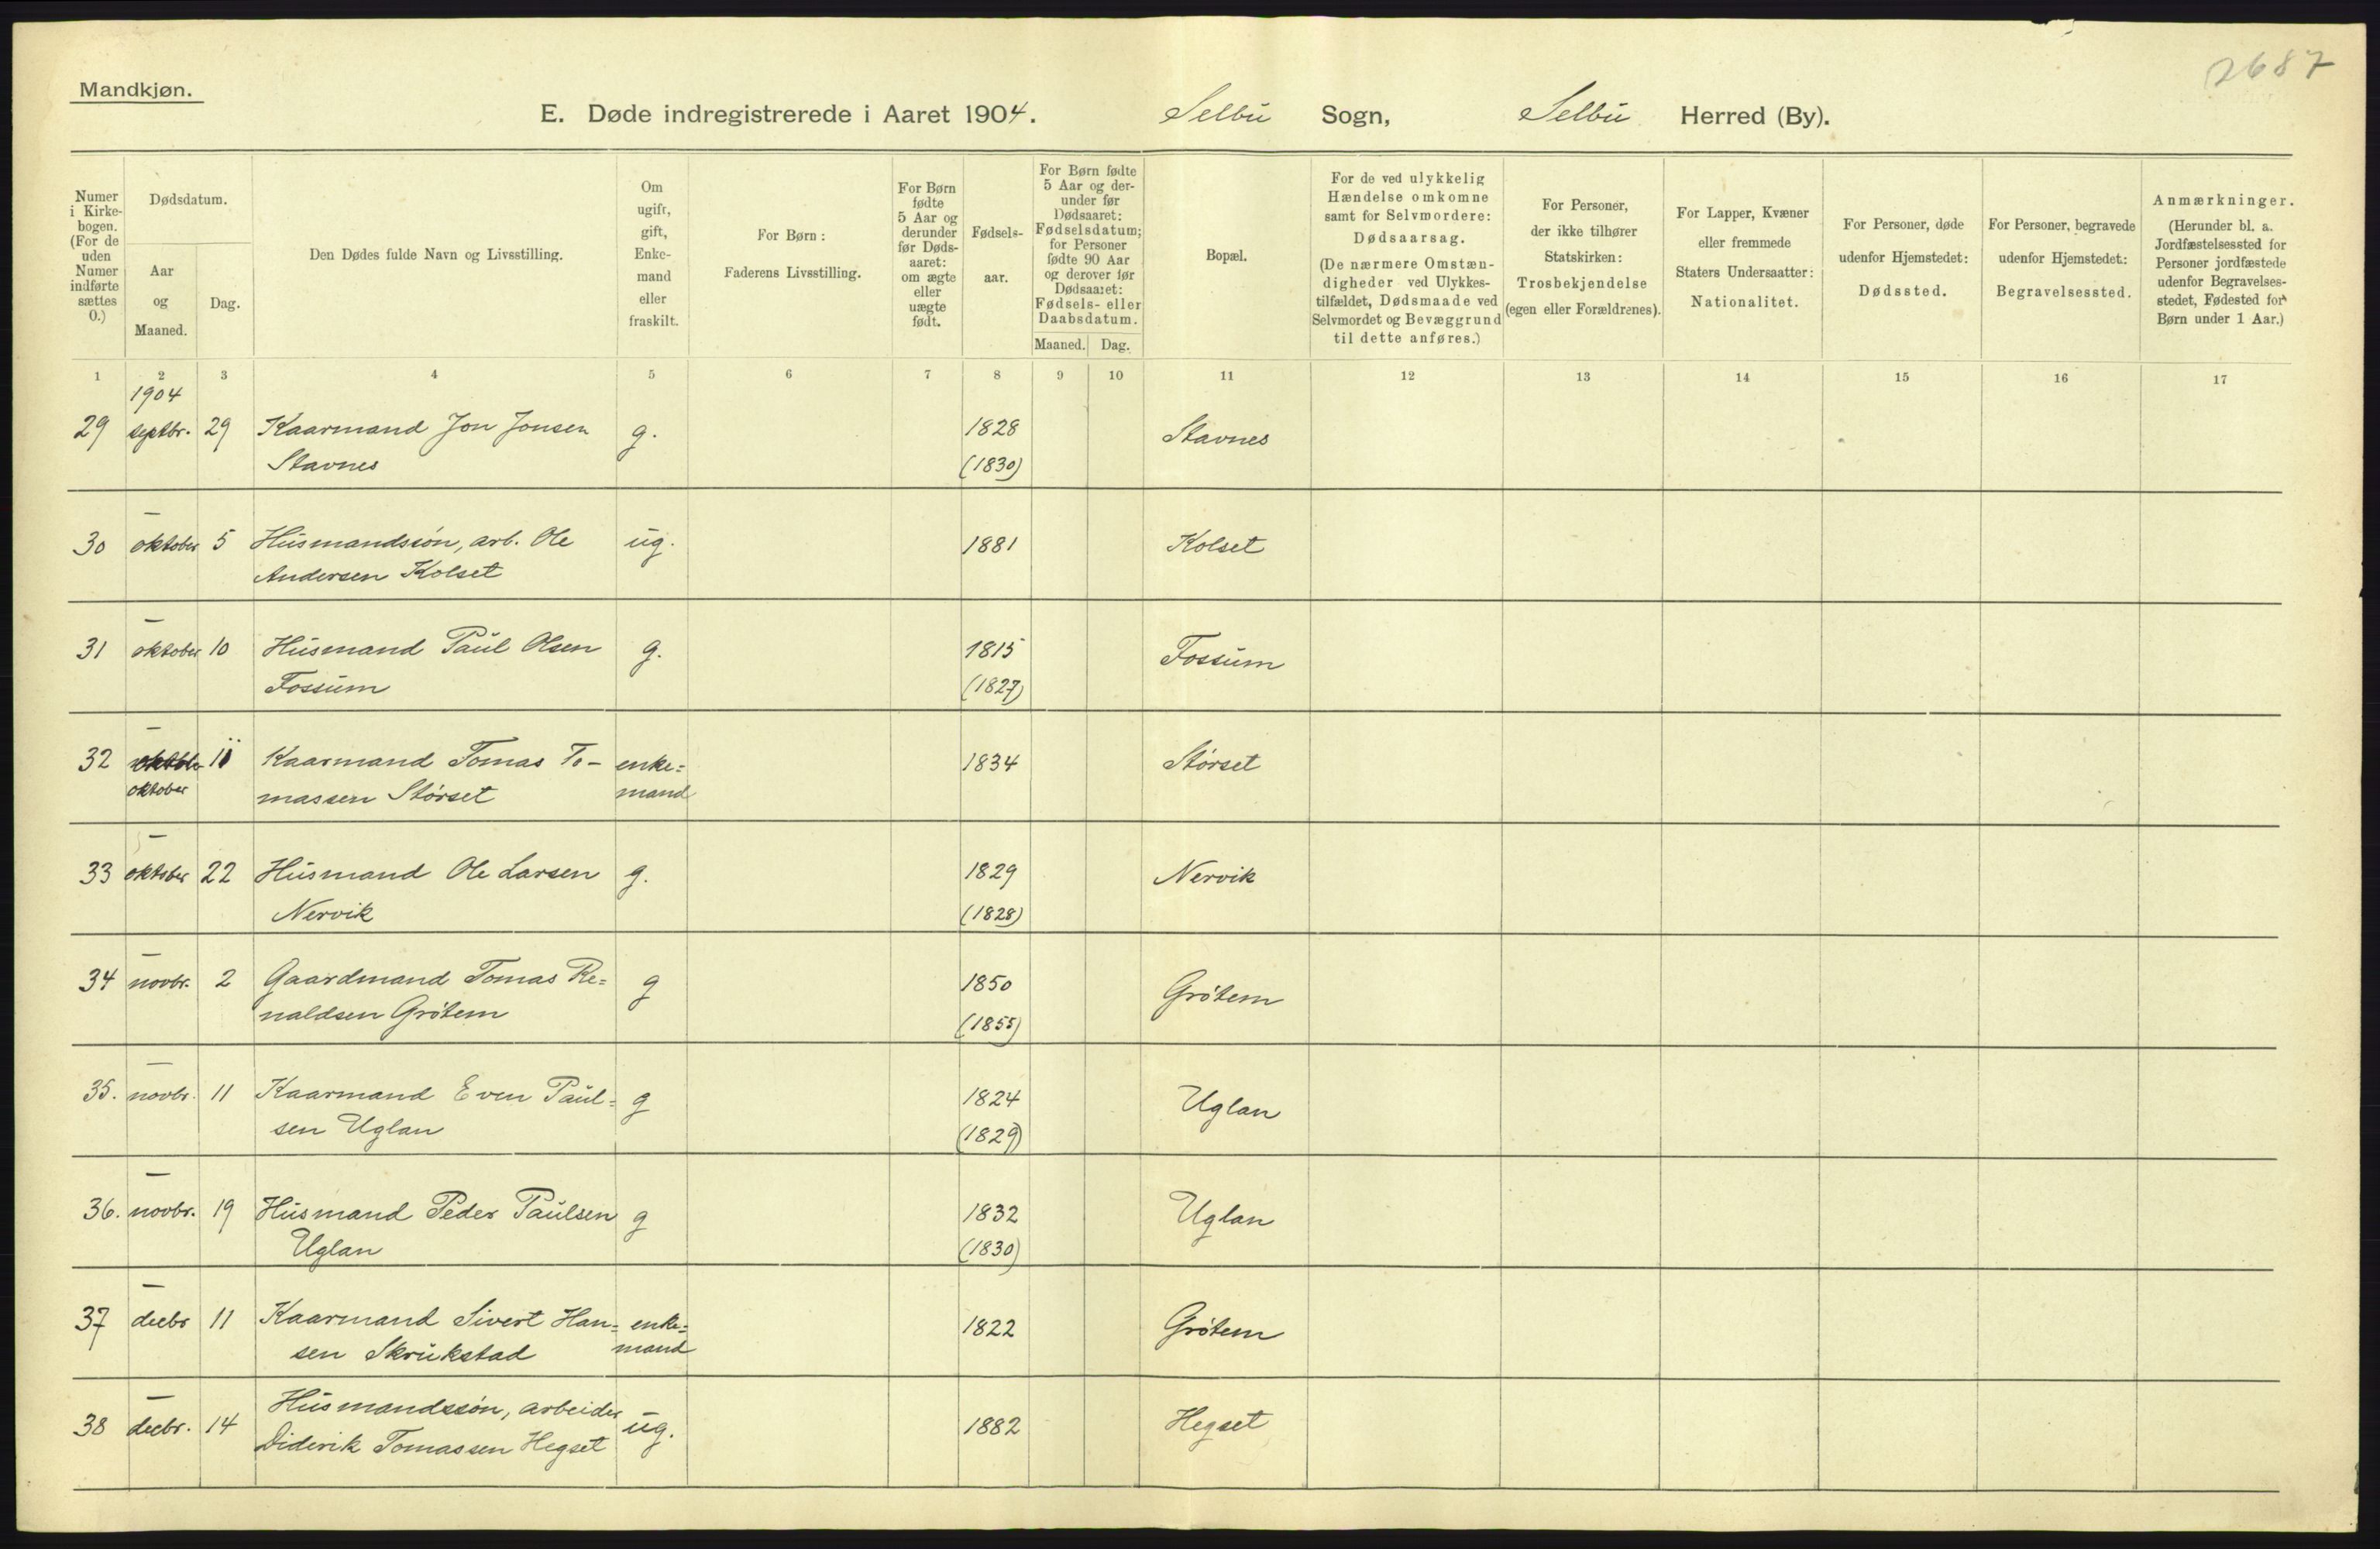 2687
Mandkjøn.
E. Døde indregistrerede i Aaret 1904. Selbu Sogn, Selbu Herred (By).
Numer i Kirkebogen. (For de uden Numer indførte sættes 0.)
Dødsdatum.
Aar og Maaned.
Dag.
Den Dødes fulde Navn og Livsstilling.
Om ugift, gift, Enkemand eller fraskilt.
For Børn: Faderens Livsstilling.
For Børn fødte 5 Aar og derunder før Dødsaaret: om ægte eller uægte født.
Fødselsaar.
For Børn fødte 5 Aar og derunder før Dødsaaret: Fødselsdatum; for Personer fødte 90 Aar og derover før Dødsaaret: Fødsels- eller Daabsdatum.
Maaned. Dag.
Bopæl.
For de ved ulykkelig Hændelse omkomne samt for Selvmordere: Dødsaarsag. (De nærmere Omstændigheder ved Ulykkestilfældet, Dødsmaade ved Selvmordet og Bevæggrund til dette anføres.)
For Personer, der ikke tilhører Statskirken: Trosbekjendelse (egen eller Forældrenes).
For Lapper, Kvæner eller fremmede Staters Undersaatter: Nationalitet.
For Personer, døde udenfor Hjemstedet: Dødssted.
For Personer, begravede udenfor Hjemstedet: Begravelsessted.
Anmærkninger. (Herunder bl. a. Jordfæstelsessted for Personer jordfæstede udenfor Begravelsesstedet, Fødested for Børn under 1 Aar.)
1 2 3 4 5 6 7 8 9 10 11 12 13 14 15 16 17
1904
29 septbr. 29 Kaarmand Jon Jonsen g. 1828 Stavnes
Stavnes (1830)
—
30 oktober 5 Husmandssøn, arb. Ole ug. 1881 Kolset
Andersen Kolset
—
31 oktober 10 Husmand Paul Olsen g. 1815 Fossum
Fossum (1827)
—
32 11 Kaarmand Tomas To- enke= 1834 Størset
oktober massen Størset mand
—
33 oktober 22 Husmand Ole Larsen g. 1829 Nervik
Nervik (1828)
—
34 novbr. 2 Gaardmand Tomas Re= g 1850 Grøtem
naldsen Grøtem (1855)
—
35. novbr. 11 Kaarmand Even Paul= g 1824 Uglan
sen Uglan (1829)
—
36. novbr. 19 Husmand Peder Paulsen g 1832 Uglan
Uglan (1830)
—
37 decbr 11 Kaarmand Sivert Han= enke= 1822 Grøtem
sen Skrukstad mand
—
38 decbr. 14 Husmandssøn, arbeider ug. 1882 Hegset
Diderik Tomassen Hegset